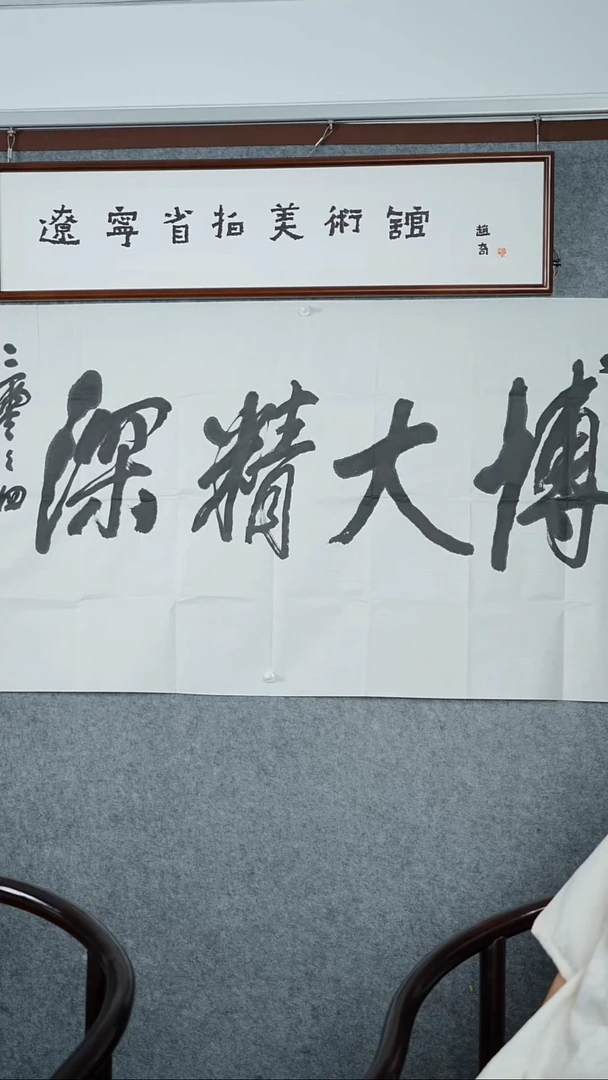 遼寧省拍美術館
趙奇
博大精深
二零二四